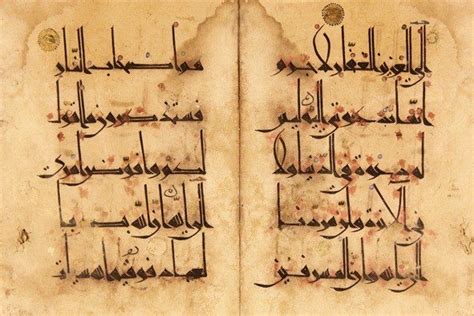 الى العزيز الغفار لا جرم
انما تدعونني اليه ليس
له دعوة في الدنيا ولا
في الاخرة وان مردنا
الى الله وان المسرفين
هم اصحاب النار
فستذكرون ما اقول
لكم وافوض امري
الى الله ان الله بصير با
لعباد فوقيه الله سيات